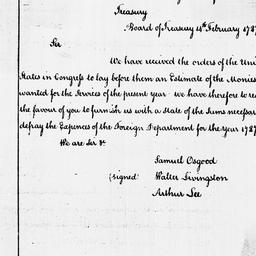 Treasury
Board of Treasury 14th February 1787
Sir
We have received the orders of the Uni
States in Congress to lay before them an Estimate of the Monies
wanted for the Services of the present year. we have therefore to re
the favour of you to furnish us with a State of the Sums necessar
defray the Expences of the Foreign Department for the year 1787
We are Sir &c
Samuel Osgood
(signed) Walter Livingston
Arthur Lee